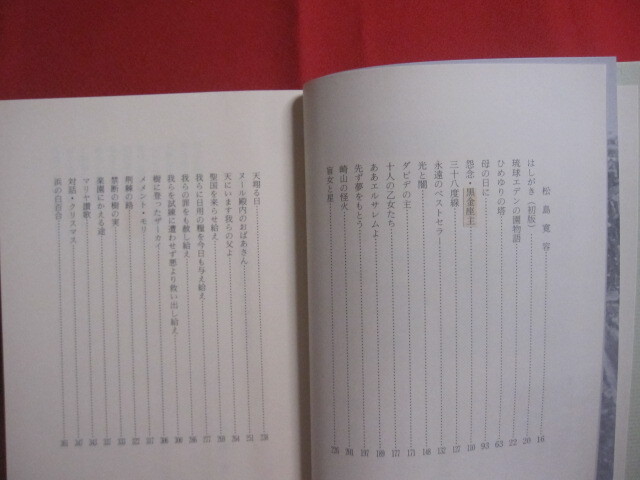 松島寛容
はしがき(初版) 16
琉球エデンの園物語 20
ひめゆりの塔 22
母の日に 63
怨念・黒金座主 93
三十八度線 110
永遠のベストセラー 127
光と闇
ダビデの主
十人の乙女たち
ああエルサレムよ
先ず夢をもとう
崎山の怪火
盲女と星
天翔る日
ヌール殿内のおばあさん
天にいます我らの父よ
聖国を来らせ給え
我らに日用の糧を今日も与え給え
我らの罪をも赦し給え
我らを試練に遭わせず悪より救い出し給え
樹に登ったザーカイ
メメント・モリ
荊棘の路
禁断の樹の実
楽園にかえる途
マリヤ讃歌
対話・クリスマス
浜の白百合